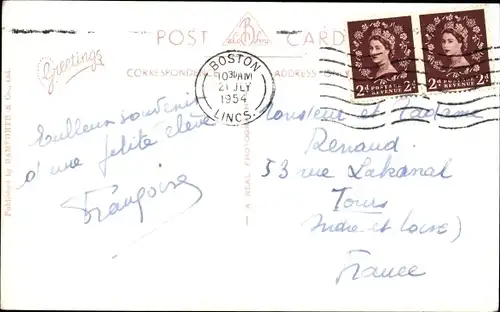 POST CARD
Greetings
CORRESPONDENCE
ADDRESS ON
BOSTON
10 30 AM
21 JLY
1954
LINCS.
2d POSTAGE REVENUE 2d
2d POSTAGE REVENUE 2d
Published by BAMFORTH & Co., Ltd.
A REAL PHOTOGRAPH
Meilleur souvenir
d'une petite élève
Françoise
Monsieur et Madame
Renaud.
53 rue Lakanal
Tours
Indre et Loire)
France